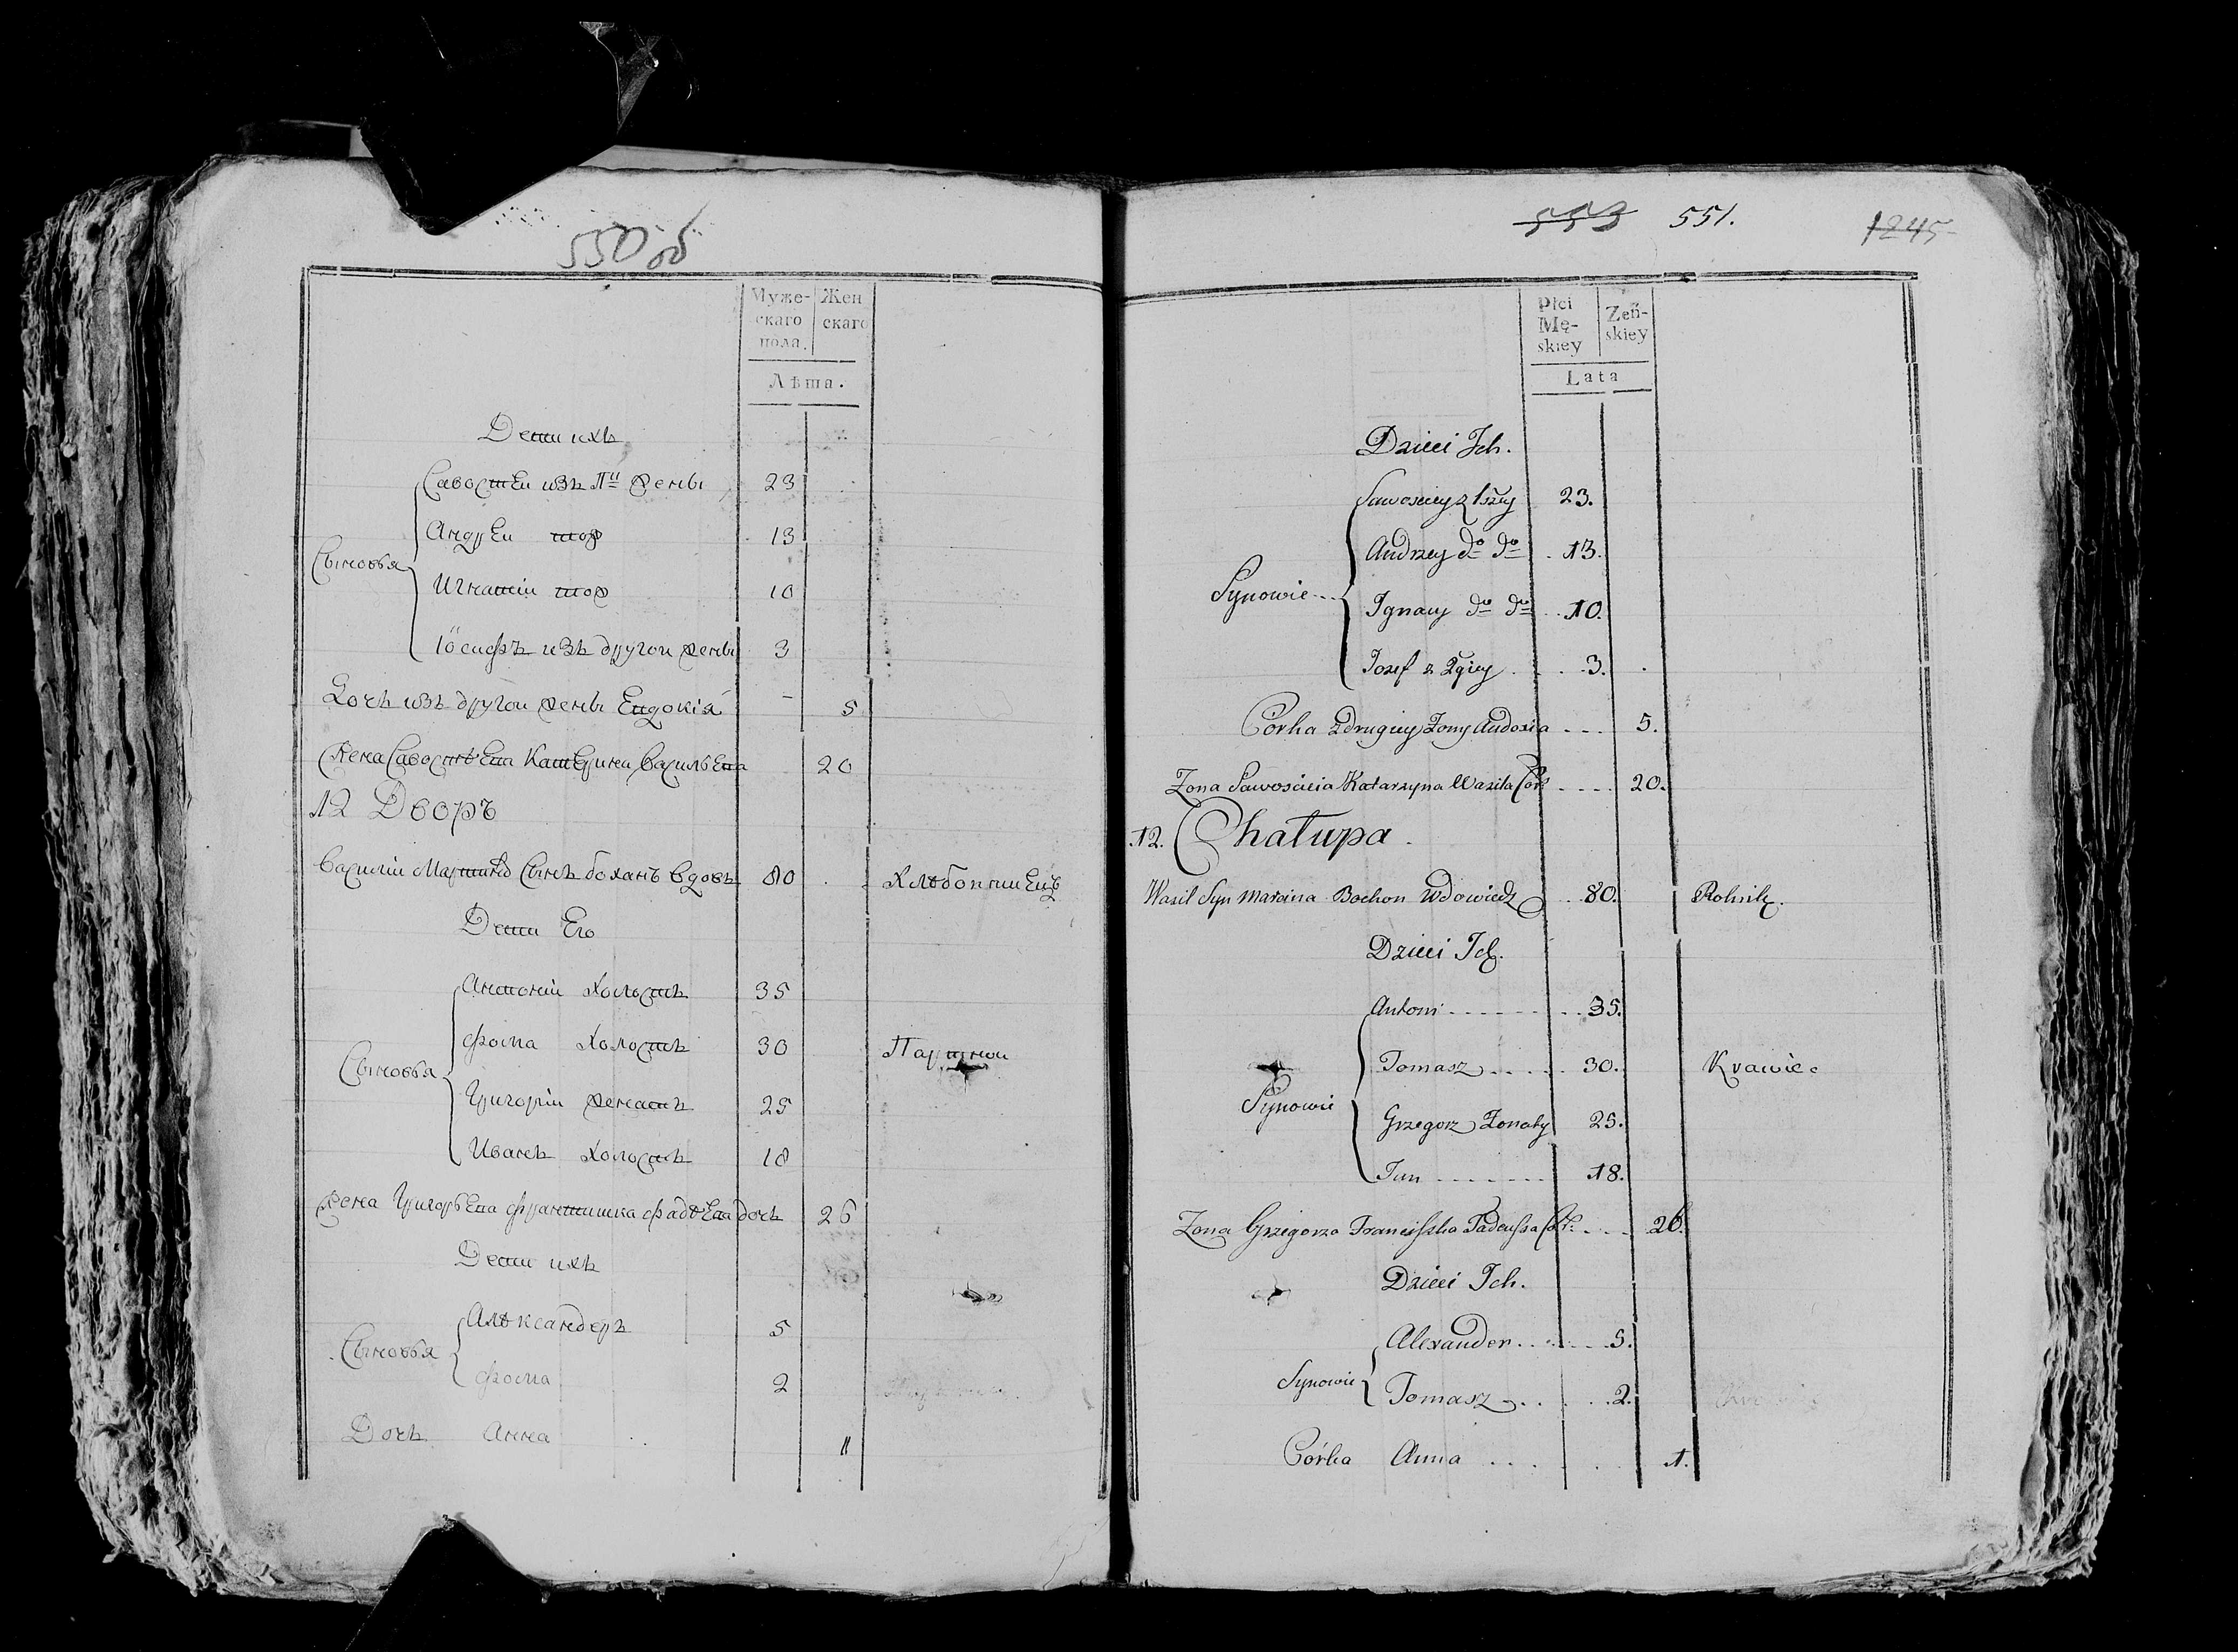 550 об
Муже-
скаго
пола.
Жен
скаго
Лѣта.
Дети ихъ
Савостеи изъ 1й жены 23
Андреи тож 13
Сыновья
Игнатіи тож 10
Іосифъ изъ другои жены 3
Дочь изъ другои жены Евдокія - 5
Жена Савостѣева Катерина Васильева 20
12 Дворъ
Василіи Мартина Сынъ Боханъ вдовъ 80 Хлѣбопашецъ
Дети Его
Антоніи Холостъ 35
Фома Холостъ 30 Партнои
Сыновья
Григоріи женатъ 25
Иванъ Холостъ 18
Жена Григорьева Францишка Фадѣева дочь 26
Дети ихъ
Алѣксандеръ 5
Сыновья
Фома 2
Дочь Анна 11
553 551. 1245
Płci
Mę-
skiey
Zeń-
skiey
Lata
Dzieci Ich.
Sawosciey z 1szey 23.
Andrzey do do 13.
Synowie
Ignacy do do 10.
Jozef z 2giey 3.
Corka z drugiey Zony Audosia 5.
Zona Sawoscieia Katarzyna Wasila Cor: 20.
12. Chałupa.
Wasil Syn Marcina Bochon Wdowiec 80. Rolnik.
Dzieci Ich.
Antoni 35.
Tomasz 30. Krawiec
Synowie
Grzegorz Zonaty 25.
Jan 18.
Zona Grzegorza Franciszka Tadeusza Cor: 26.
Dzieci Ich.
Alexander 5.
Synowie
Tomasz 2.
Córka Anna 1.